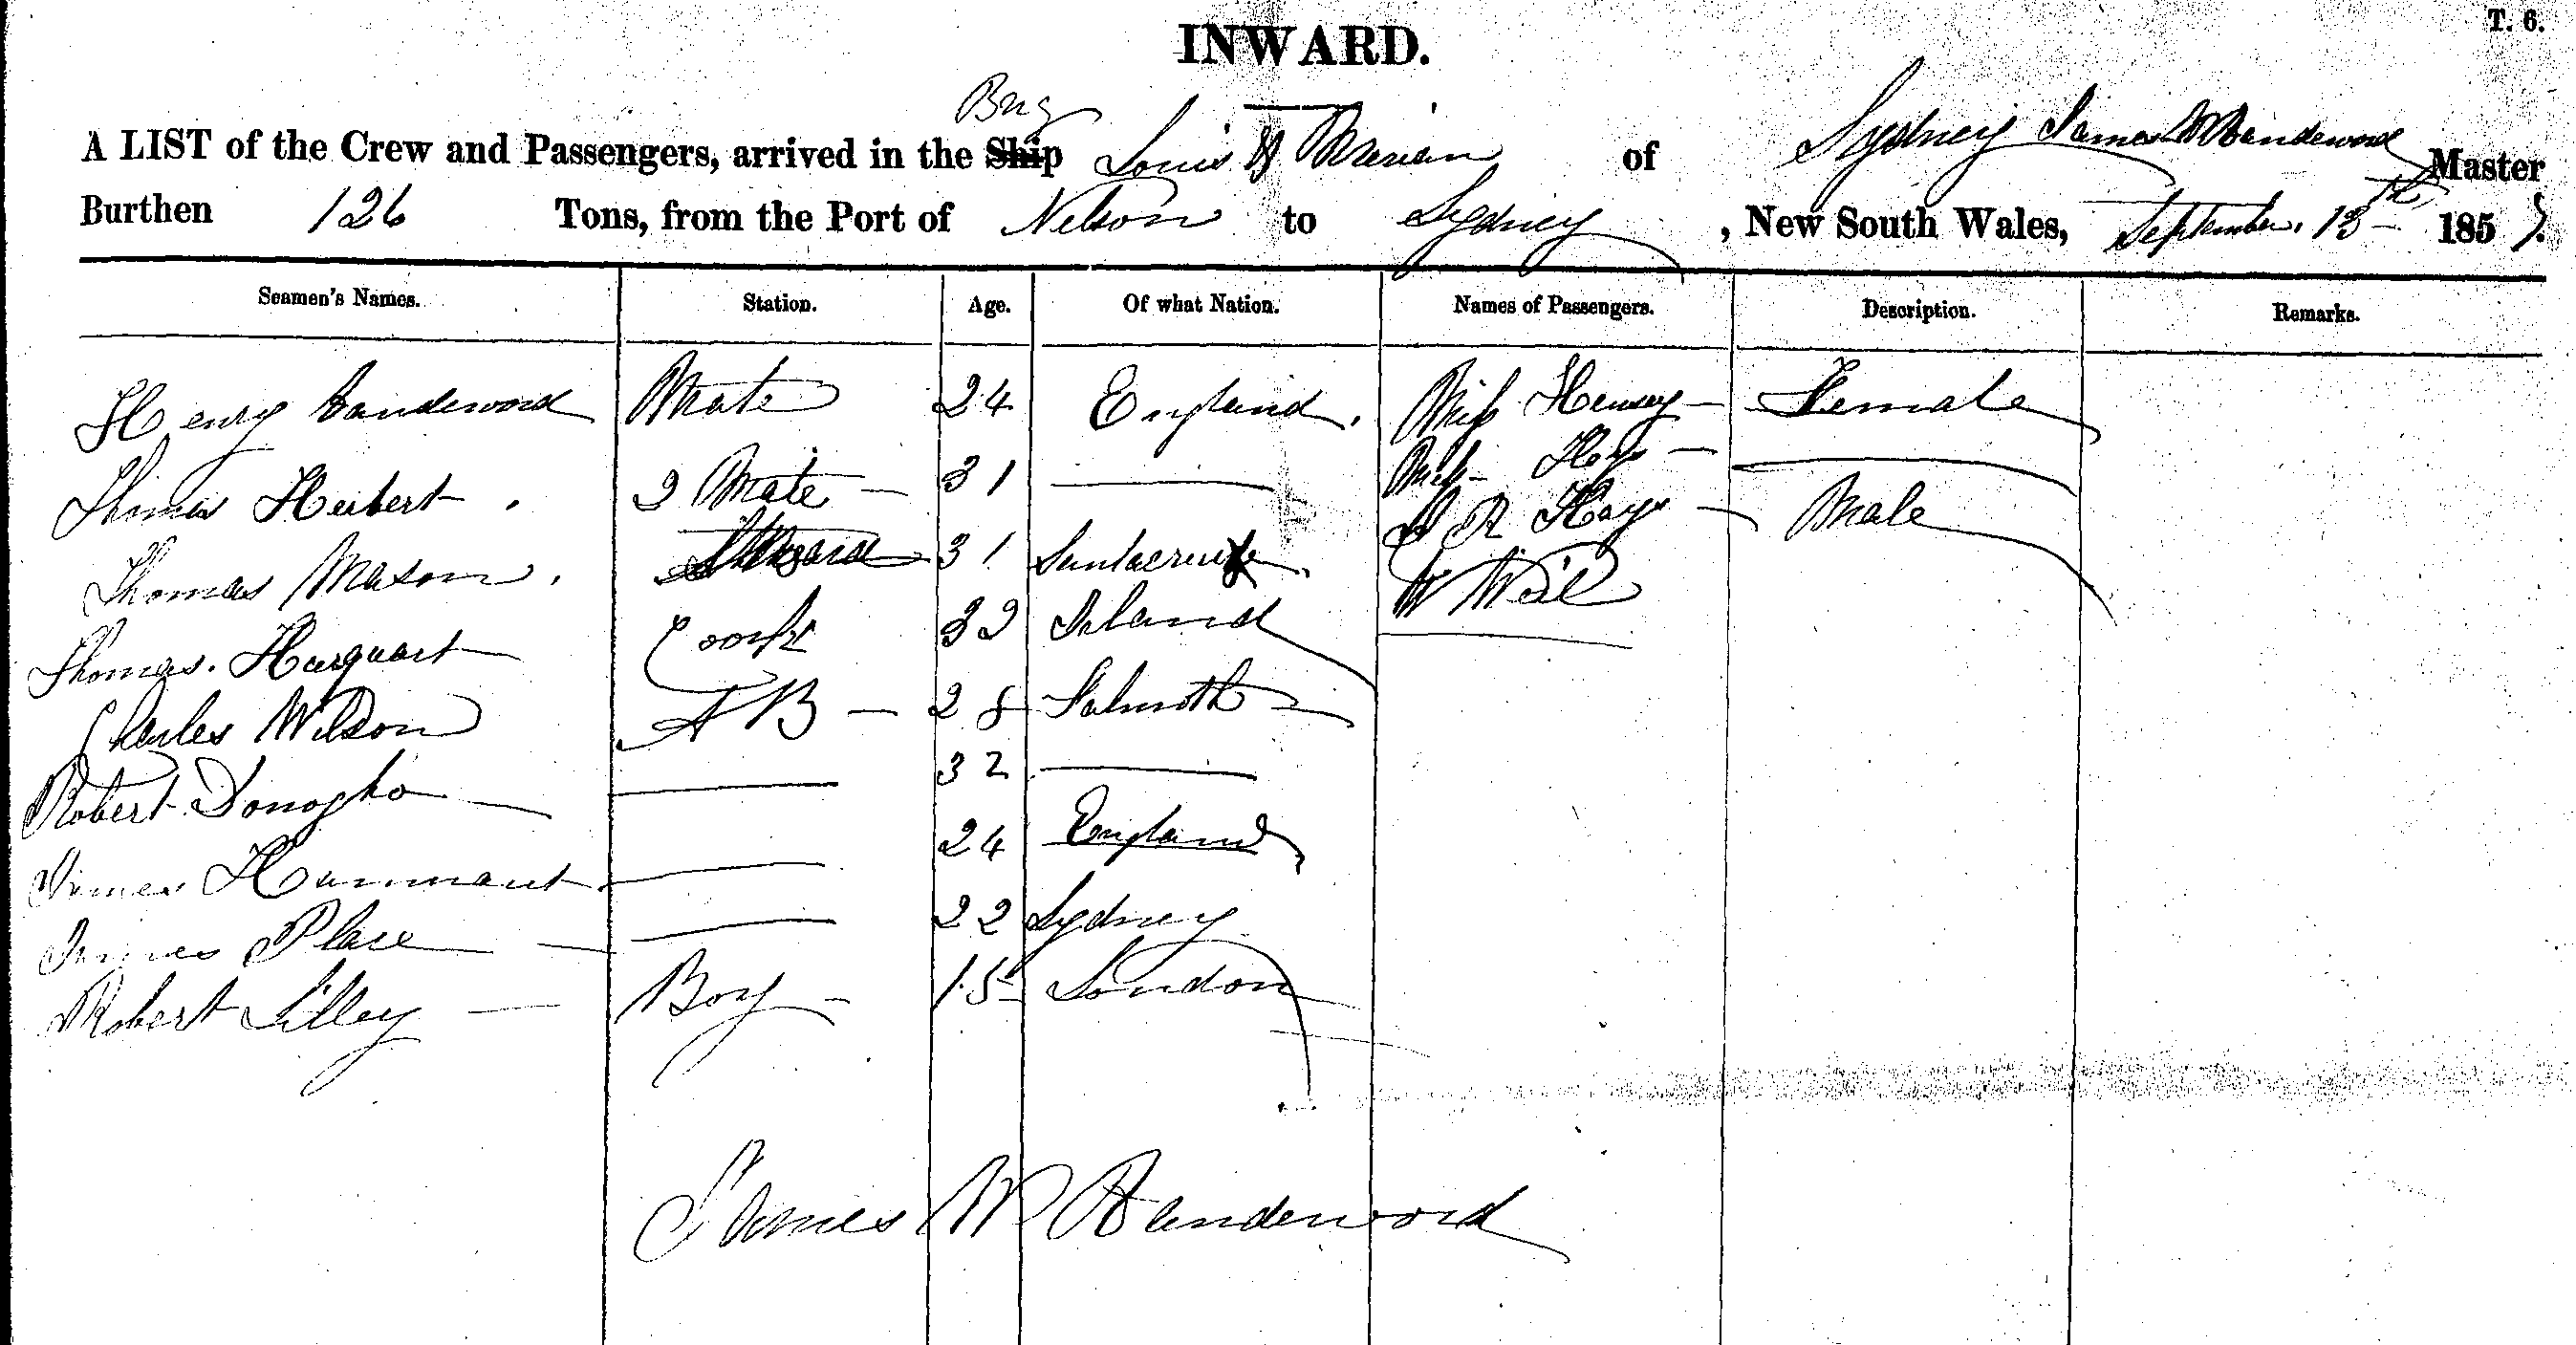 T. 6.
INWARD.
Brig
A LIST of the Crew and Passengers, arrived in the Ship Louis & Miriam of Sydney James W Vandeword Master
Burthen 126 Tons, from the Port of Nelson to Sydney, New South Wales, September 13th 1857.
Seamen's Names. Station. Age. Of what Nation. Names of Passengers. Description. Remarks.
Henry Vandeword Mate 24 England. Miss Hensey Female
Thomas Herbert. 2 Mate 31 — Miss Hays —
Thomas Mason. Steward 31 Santacruse J R Hays Male
Thomas. Harquart Cook 32 Island W Weil
Charles Wilson A B 28 Falmoth
Robert Donogho — 32 —
James Hammant — 24 England
James Place — 22 Sydney
Robert Lilley — Boy — 15 London
James W Vandeword